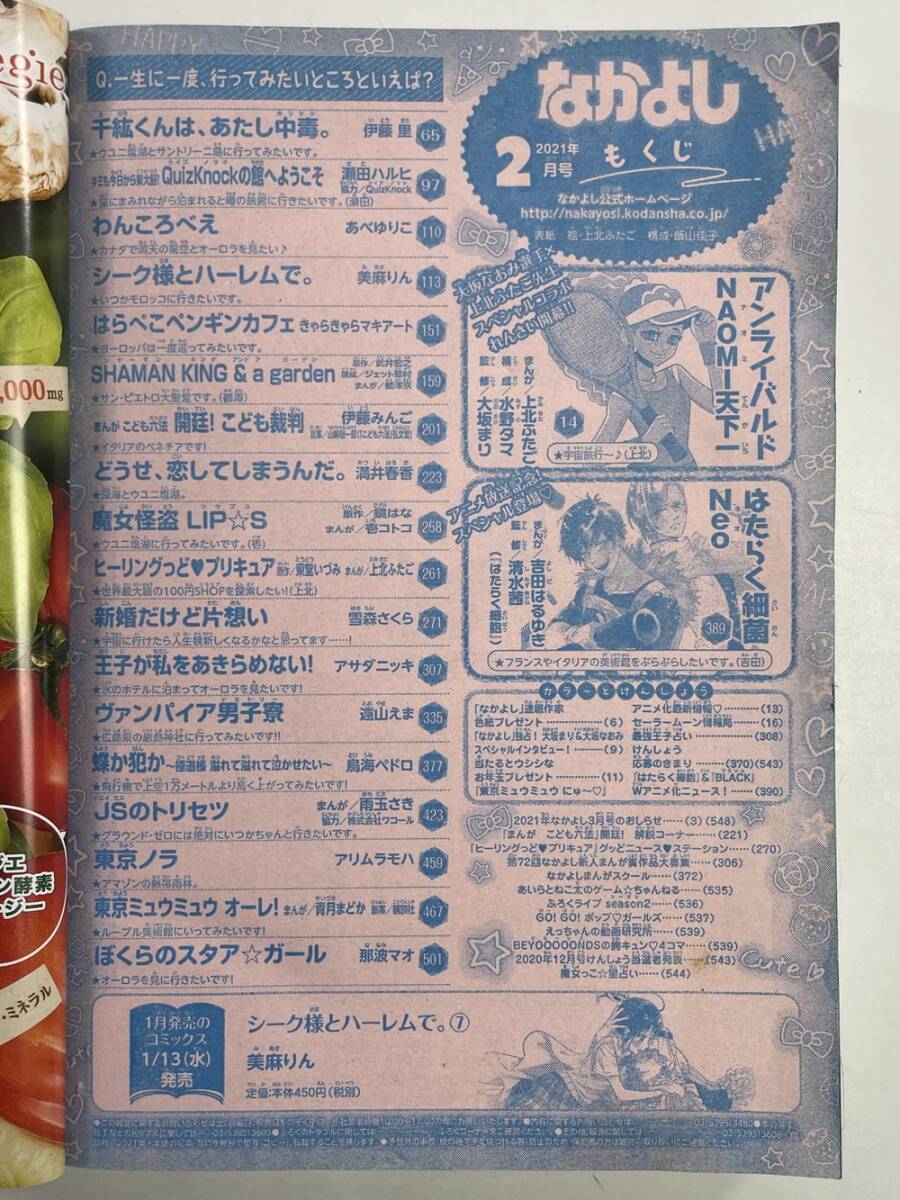 egie
,000mg
ジエ
ン酵素
ージー
・ミネラル
HAPPY
Q.一生に一度、行ってみたいところといえば?
千紘くんは、あたし中毒。 伊藤 里 65
★ウユニ塩湖とサントリーニ島に行ってみたいです。
キミも今日から東大脳! QuizKnockの館へようこそ 瀬田ハルヒ 協力/QuizKnock 97
わんころべえ あべゆりこ 110
★カナダで満天の星空とオーロラを見たい♪
シーク様とハーレムで。 美麻りん 113
★いつかモロッコに行きたいです。
はらぺこペンギンカフェ きゃらきゃらマキアート 151
★ヨーロッパは一度巡ってみたいです。
SHAMAN KING & a garden 原作/武井宏之 構成/ジェット草村 まんが/鵺澤京 159
★サン・ピエトロ大聖堂です。(鵺澤)
まんが こども六法 開廷!こども裁判 伊藤みんご 201
★イタリアのベネチアです!
どうせ、恋してしまうんだ。 満井春香 223
★深海とウユニ塩湖。
魔女怪盗LIP☆S 原作/鏡はな まんが/壱コトコ 258
★ウユニ塩湖に行ってみたいです。(壱)
ヒーリングっど♥プリキュア 原作/東堂いづみ まんが/上北ふたご 261
★世界最大級の100円SHOPを探索したい!(上北)
新婚だけど片想い 雪森さくら 271
★宇宙に行けたら人生観新しくなるかなと思ってます……!
王子が私をあきらめない! アサダニッキ 307
★氷のホテルに泊まってオーロラを見たいです!
ヴァンパイア男子寮 遠山えま 335
★広島県の厳島神社に行ってみたいです!!
蝶か犯か~極道様 溢れて溢れて泣かせたい~ 鳥海ペドロ 377
★飛行機で上空1万メートルより高く上がってみたいです!
JSのトリセツ まんが/雨玉さき 協力/株式会社ワコール 423
★グラウンド・ゼロには絶対にいつかちゃんと行きたいです。
東京ノラ アリムラモハ 459
★アマゾンの熱帯雨林。
東京ミュウミュウ オーレ! まんが/青月まどか 原案/講談社 467
★ルーブル美術館にいってみたいです!
ぼくらのスタア☆ガール 那波マオ 501
★オーロラを見に行きたいです!
なかよし
2 2021年
月号 もくじ
なかよし公式ホームページ
http://nakayosi.kodansha.co.jp/
表紙 絵・上北ふたご 構成・飯山佳子
大坂なおみ選手×
上北ふたご先生
スペシャルコラボ
れんさい開幕!!
アンライバルド
NAOMI天下一
まんが/上北ふたご
構成/水野タマ
監修/大坂まり
14
★宇宙旅行~♪(上北)
アニメ放送記念!
スペシャル登場♡
はたらく細菌
Neo
まんが/吉田はるゆき
監修/清水茜
(「はたらく細胞」)
389
★フランスやイタリアの美術館をぶらぶらしたいです。(吉田)
カラーとけんしょう
「なかよし」連載作家
色紙プレゼント……(6)
「なかよし」独占!大坂まり&大坂なおみ
スペシャルインタビュー!……(9)
当たるとウシシな
お年玉プレゼント……(11)
『東京ミュウミュウ にゅ~♡』
アニメ化最新情報♡……(13)
セーラームーン情報局……(16)
最強王子占い……(308)
けんしょう
応募のきまり……(370)(543)
『はたらく細胞』&『BLACK』
Wアニメ化ニュース!……(390)
2021年なかよし3月号のおしらせ……(3)(548)
「まんが こども六法」開廷! 解説コーナー……(221)
「ヒーリングっど♥プリキュア」グッどニュース♥ステーション……(270)
第72回なかよし新人まんが賞作品大募集……(306)
なかよしまんがスクール……(372)
あいらとねこ太のゲーム☆ちゃんねる……(535)
ふろくライブ season2……(536)
GO!GO!ポップ♡ガールズ……(537)
えっちゃんの動画研究所……(539)
BEYOOOOONDSの胸キュン♡4コマ……(539)
2020年12月号けんしょう当選者発表……(543)
魔女っこ☆星占い……(544)
Cute
1月発売の
コミックス
1/13(水)
発売
シーク様とハーレムで。⑦
美麻りん
定価:本体450円(税別)